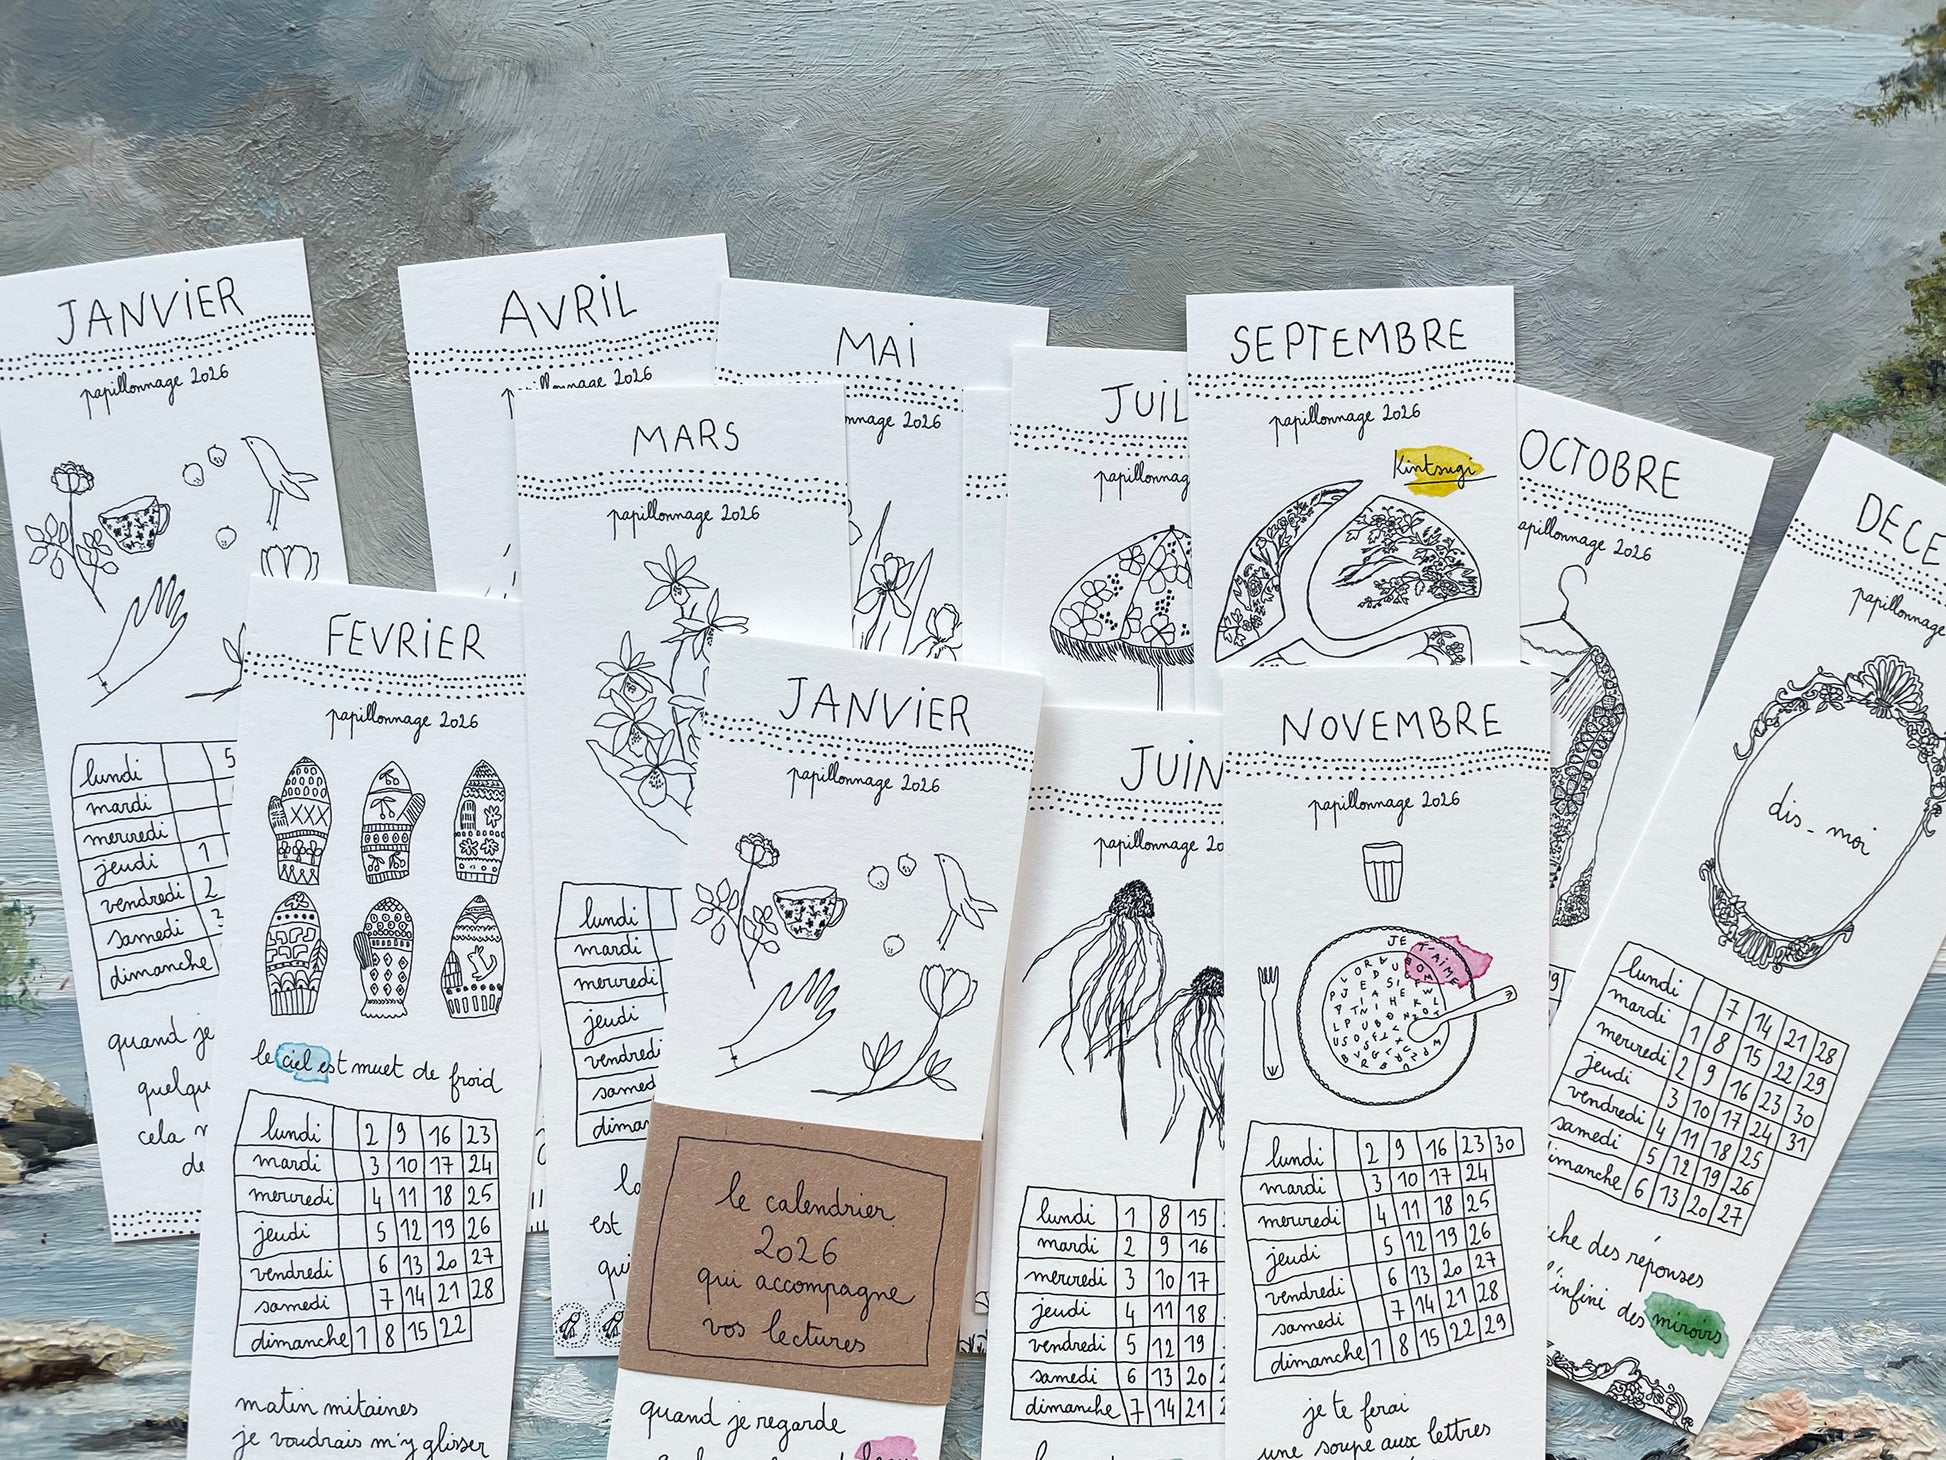 JANVIER
papillonnage 2026
lundi 5
mardi
mercredi
jeudi 1
vendredi 2
samedi 3
dimanche
quand je
cela
AVRIL
papillonnage 2026
MAI
2026
JUIL
SEPTEMBRE
papillonnage 2026
Kintsugi
OCTOBRE
papillonnage 2026
DECE
papillonnage
dis-moi
lundi 7 14 21 28
mardi 1 8 15 22 29
mercredi 2 9 16 23 30
jeudi 3 10 17 24 31
vendredi 4 11 18 25
samedi 5 12 19 26
dimanche 6 13 20 27
des réponses
l'infini des miroirs
MARS
papillonnage 2026
lundi
mardi
mercredi
jeudi
vendredi
samed
dima
est
qui
FEVRIER
papillonnage 2026
le ciel est muet de froid
lundi 2 9 16 23
mardi 3 10 17 24
mercredi 4 11 18 25
jeudi 5 12 19 26
vendredi 6 13 20 27
samedi 7 14 21 28
dimanche 1 8 15 22
matin mitaines
je voudrais m'y glisser
JANVIER
papillonnage 2026
le calendrier
2026
qui accompagne
vos lectures
quand je regarde
JUIN
papillonnage 20
lundi 1 8 15
mardi 2 9 16
mercredi 3 10 17
jeudi 4 11 18
vendredi 5 12 19
samedi 6 13 20
dimanche 7 14 21
NOVEMBRE
papillonnage 2026
JE T'AIME
lundi 2 9 16 23 30
mardi 3 10 17 24
mercredi 4 11 18 25
jeudi 5 12 19 26
vendredi 6 13 20 27
samedi 7 14 21 28
dimanche 1 8 15 22 29
je te ferai
une soupe aux lettres